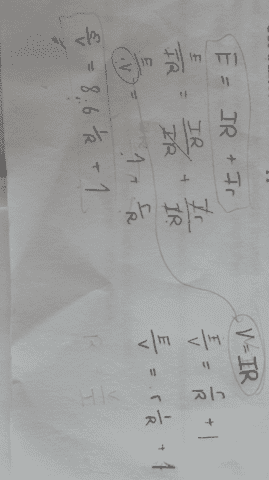 E = IR + Ir
E/IR = IR/IR + Ir/IR
E/V = 1 + r/R
ε/V = 8.6 1/R + 1
V = IR
E/V = r/R + 1
E/V = r 1/R + 1